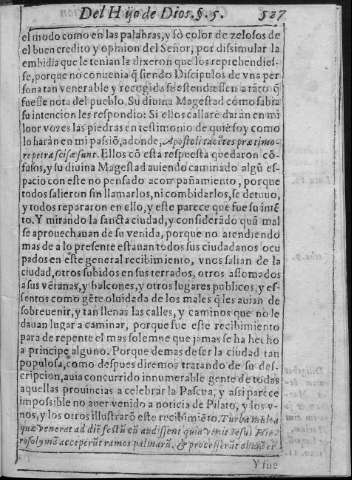 Del Hijo de Dios. §. 5. 527
el modo como en las palabras, y só color de zelosos de
el buen credito y opinion del Señor; por dissimular la
embidia que le tenian la dixeron que los reprehendies-
se, porque no conuenia q̃ siendo Discipulos de vna per
sona tan venerable y recogida se estendiessen a rãto q̃
fuesse nota del pueblo. Su diuina Magestad como sabia
su intencion les respondio: Si ellos callarẽ daràn en mi
loor voces las piedras en testimonio de quiẽ soy como
lo haràn en mi passiõ, adonde, Apostoli tacẽtes præ timo-
re petræ scissæ sunt. Ellos cõ esta respuesta quedaron cõ-
fusos, y su diuina Magestad auiendo caminado algũ es-
pacio con este no pensado acompañamiento, porque
todos salieron sin llamarlos, ni combidarlos, se detuuo,
y todos repararon en ello, y este parece que fue su intẽ
to. Y mirando la sancta ciudad, y considerãdo quã mal
se aprouechauan de su venida, porque no atendiendo
mas de a lo presente estauan todos sus ciudadanos ocu
pados en este general recibimiento, vnos salian de la
ciudad, otros subidos en sus terrados, otros assomados
a sus vẽtanas, y balcones, y otros lugares publicos, y es-
sentos como gẽte oluidada de los males q̃ les auian de
sobreuenir, y tan llenas las calles, y caminos que no le
dauan lugar a caminar, porque fue este recibimiento
para de repente el mas solemne que jamas se ha hecho
a principe alguno. Porque demas de ser la ciudad tan
populosa, como despues diremos tratando de su des-
cripcion, auia concurrido innumerable gente de todas
aquellas prouincias a celebrar la Pascua, y assi parece
impossible no auer venido a noticia de Pilato, y los v-
nos, y los otros illustrarõ este recibimiẽto. Turba multa
quæ venerat ad diẽ festũ cũ audissent quia venit Iesus Hiero
rosolymã acceperũt ramos palmarũ, & processerũt obuiã ei.
Y fue